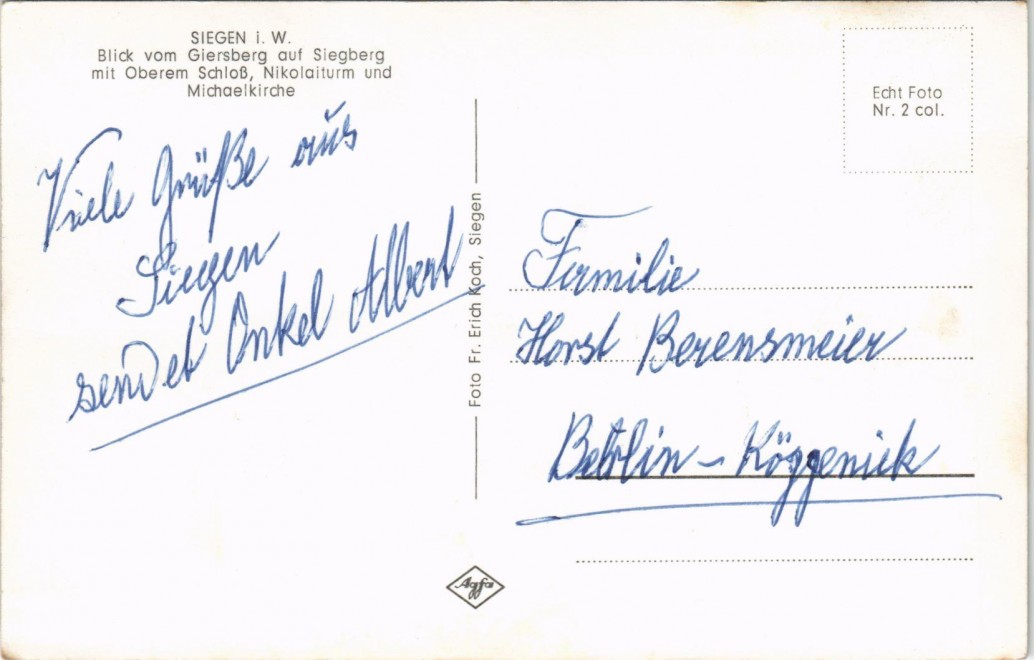 SIEGEN i. W.
Blick vom Giersberg auf Siegberg
mit Oberem Schloß, Nikolaiturm und
Michaelkirche
Viele Grüße aus
Siegen
sendet Onkel Albert
Foto Fr. Erich Koch, Siegen
Echt Foto
Nr. 2 col.
Familie
Horst Berensmeier
Berlin - Köggenick
Agfa